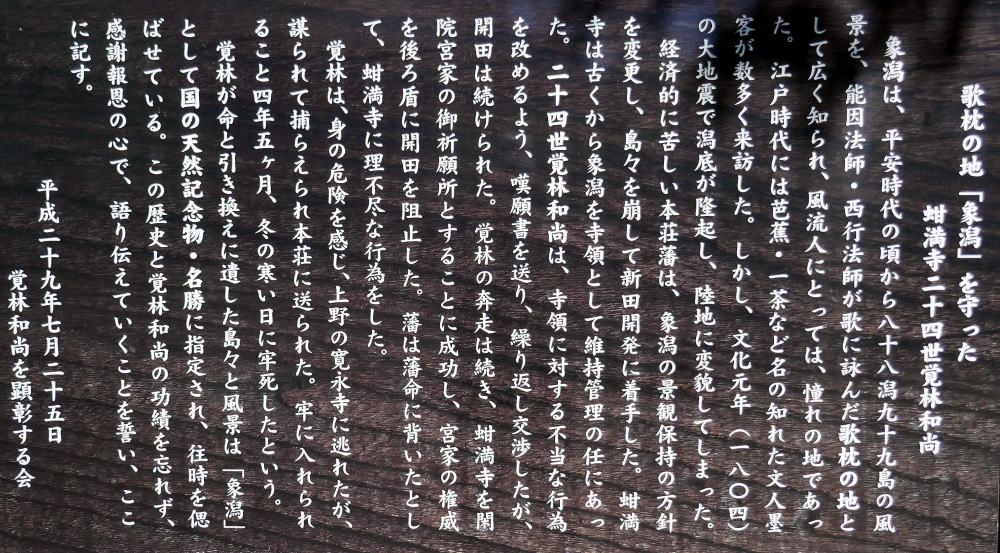 歌枕の地「象潟」を守った
蚶満寺二十四世覚林和尚
象潟は、平安時代の頃から八十八潟九十九島の風
景を、能因法師・西行法師が歌に詠んだ歌枕の地と
して広く知られ、風流人にとっては、憧れの地であっ
た。江戸時代には芭蕉・一茶など名の知れた文人墨
客が数多く来訪した。しかし、文化元年（一八〇四）
の大地震で潟底が隆起し、陸地に変貌してしまった。
経済的に苦しい本荘藩は、象潟の景観保持の方針
を変更し、島々を崩して新田開発に着手した。蚶満
寺は古くから象潟を寺領として維持管理の任にあっ
た。二十四世覚林和尚は、寺領に対する不当な行為
を改めるよう、嘆願書を送り、繰り返し交渉したが、
開田は続けられた。覚林の奔走は続き、蚶満寺を閑
院宮家の御祈願所とすることに成功し、宮家の権威
を後ろ盾に開田を阻止した。藩は藩命に背いたとし
て、蚶満寺に理不尽な行為をした。
覚林は、身の危険を感じ、上野の寛永寺に逃れたが、
謀られて捕らえられ本荘に送られた。牢に入れられ
ること四年五ヶ月、冬の寒い日に牢死したという。
覚林が命と引き換えに遺した島々と風景は「象潟」
として国の天然記念物・名勝に指定され、往時を偲
ばせている。この歴史と覚林和尚の功績を忘れず、
感謝報恩の心で、語り伝えていくことを誓い、ここ
に記す。
平成二十九年七月二十五日
覚林和尚を顕彰する会